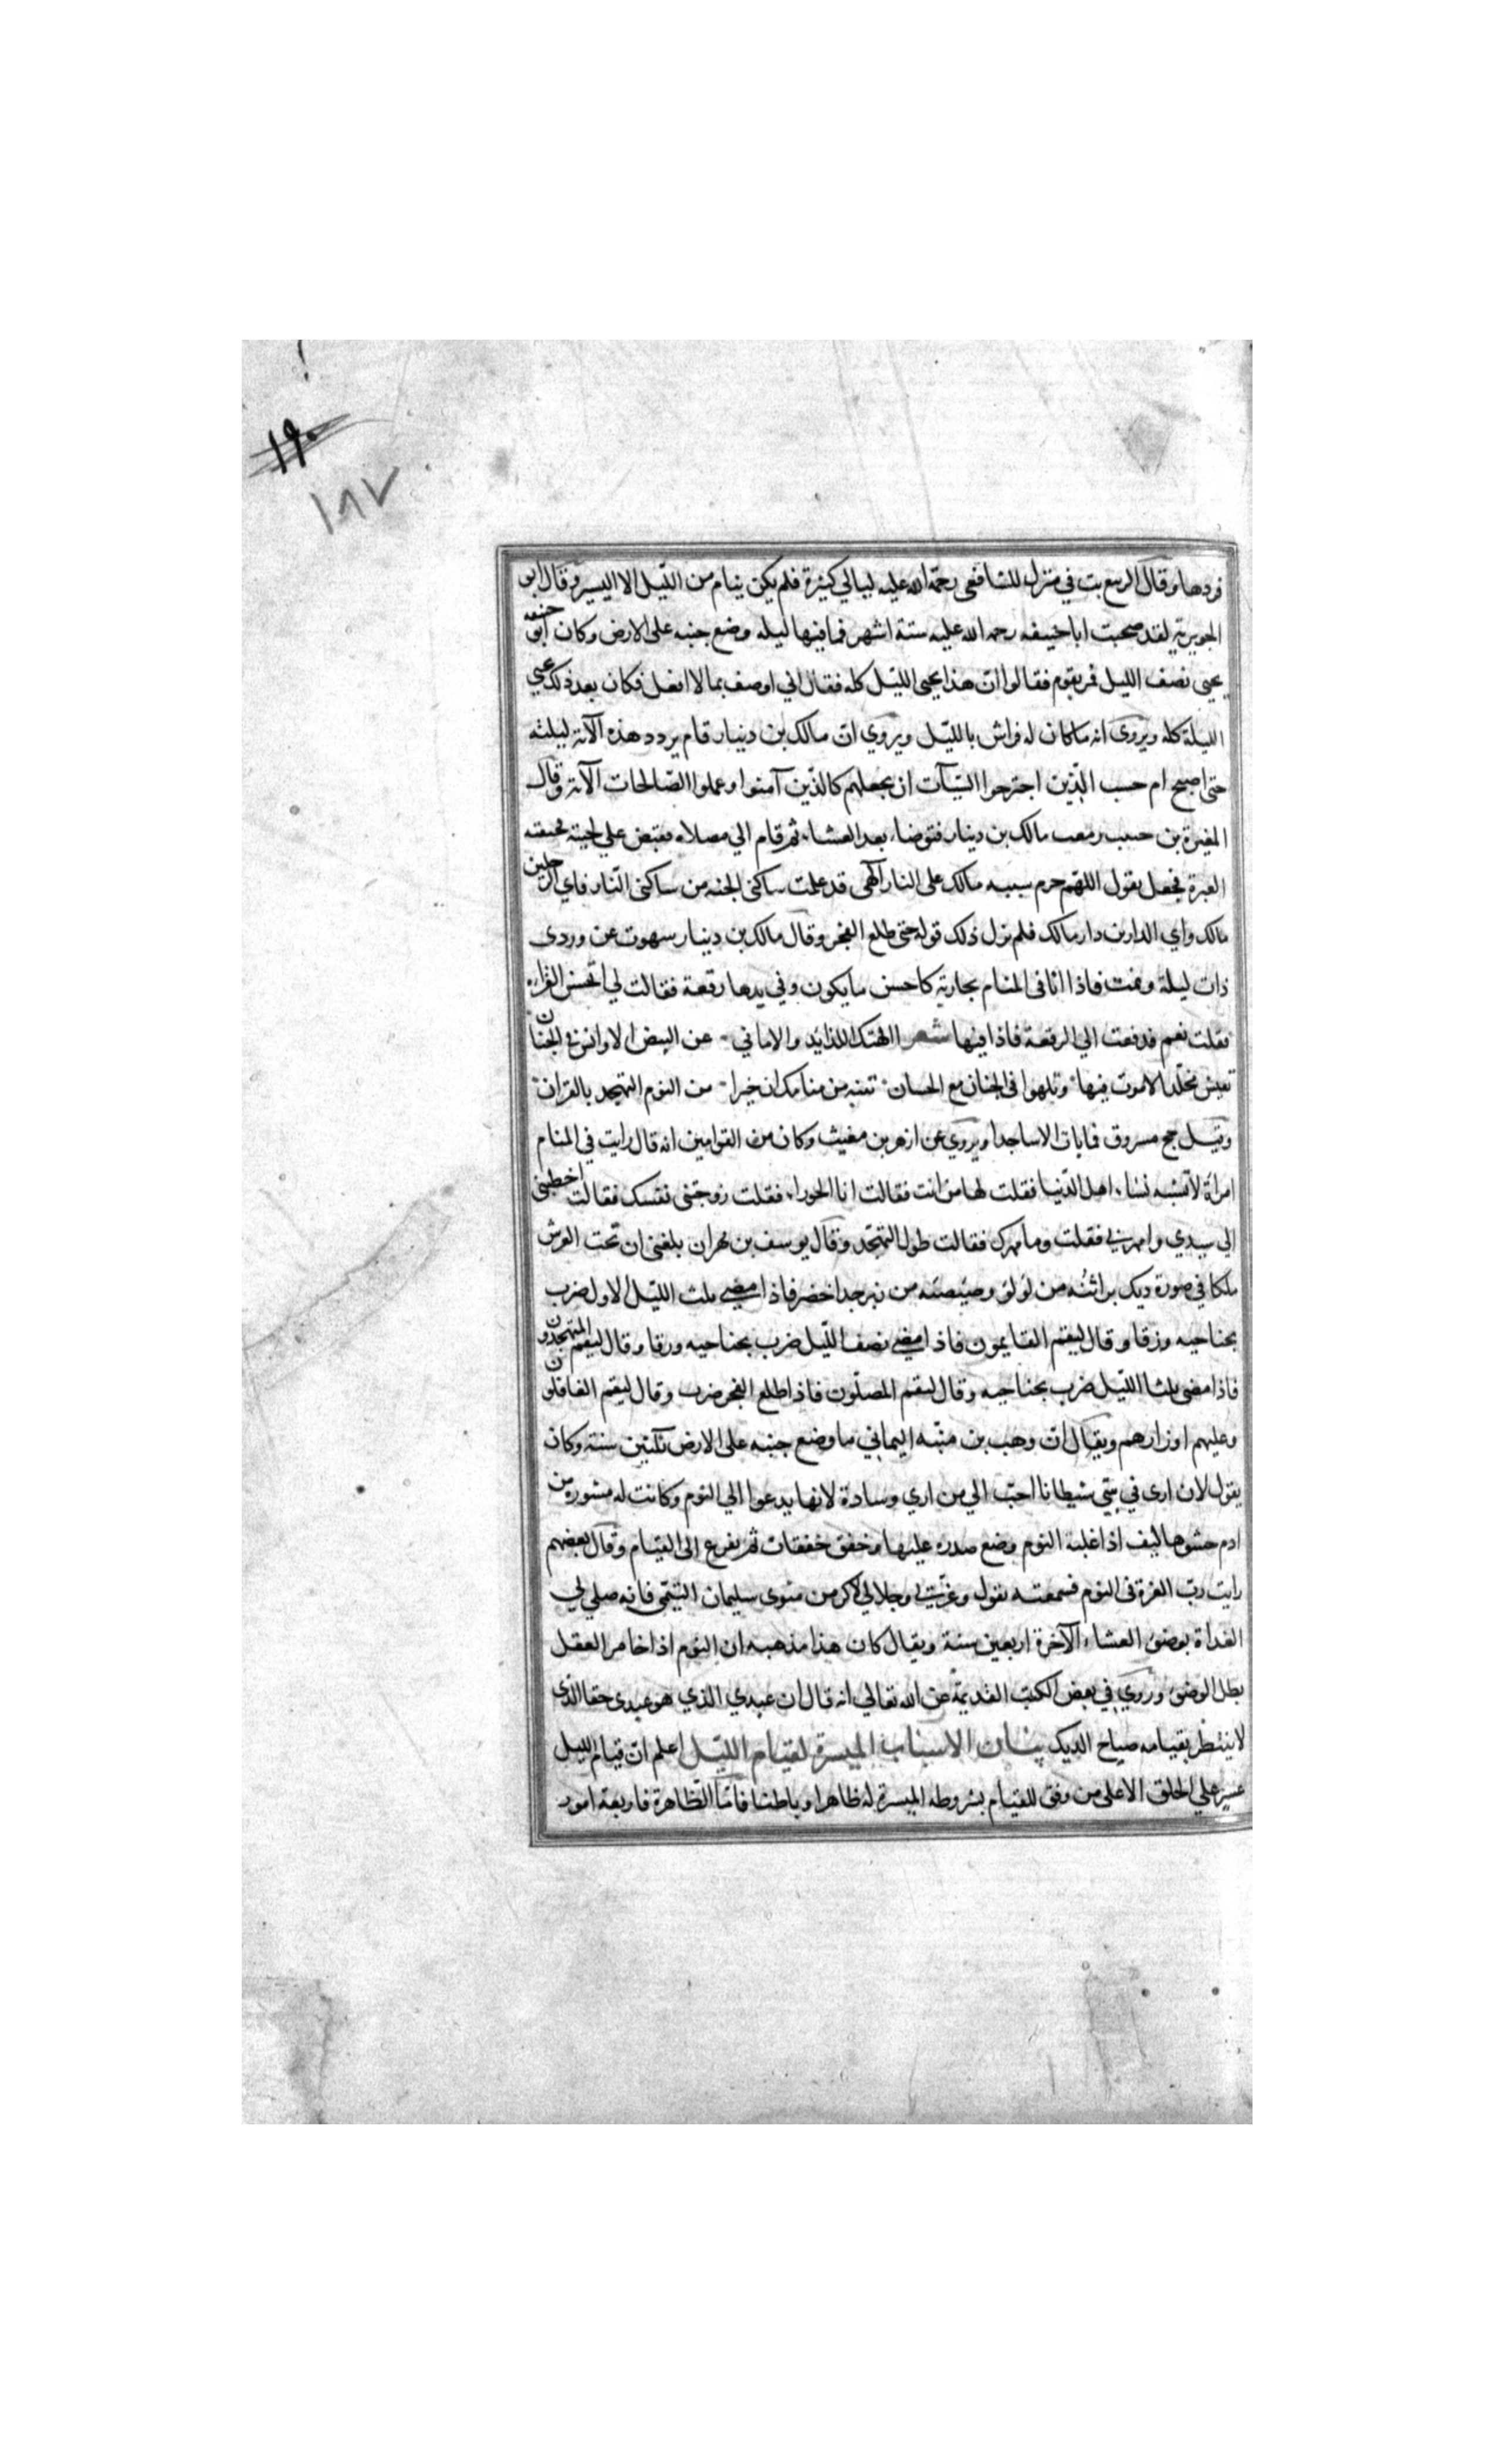 ١٩٠
١٨٧
فردها وقال الربيع بت في منزل للشافعي رحمة الله عليه ليالي كثيرة فلم يكن ينام من الليل الا اليسير وقال ابو
الجويرية لقد صحبت ابا حنيفه رحمه الله عليه ستة اشهر فما فيها ليله وضع جنبه على الارض وكان ابو حنيفه
يحيى نصف الليل فمر بقوم فقالوا انّ هذا يحيى الليل كله فقال اني اوصف بما لا افعل فكان بعد ذلك يحيى
الليلة كله ويروى انه ما كان له فراش بالليل ويروي انّ مالك بن دينار قام يردد هذه الآية ليلته
حتى اصبح ام حسب الّذين اجترحوا السّيآت ان نجعلهم كالذين آمنوا وعملوا الصّالحات الآية وقال
المغيرة بن حبيب رمقت مالك بن دينار فتوضاء بعد العشاء ثم قام الي مصلاه فقبض على لحيته فخنقته
العبرة فجعل يقول اللهم حرم شيبه مالك على النار الهى قد علمت ساكنى الجنه من ساكنى النّار فاي الرجلين
مالك واي الدارين دار مالك فلم يزل ذلك قوله حتى طلع الفجر وقال مالك بن دينار سهوت عن وردى
ذات ليلة ونمت فاذا انا فى المنام بجارية كاحسن ما يكون وفي يدها رقعة فقالت لي اتحسن القراءه
فقلت نعم فدفعت الي الرقعة فاذا فيها شعر االهتك اللذايذ والاماني عن البيض الاوانس في الجنان
تعيش مخلّدا لا موت فيها وتلهوا فى الجنان مع الحسان تنبه من منامك ان خيرا من النوم التهجد بالقران
وقيل حج مسروق فما بات الا ساجدا ويروي عن ازهر بن مغيث وكان من القوامين انه قال رايت في المنام
امراة لا تشبه نساء اهل الدّنيا فقلت لها من انت فقالت انا الحوراء فقلت زوجتنى نفسك فقالت اخطبنى
الي سيدي وامهرني فقلت وما مهرك فقالت طول التهجّد وقال يوسف بن مهران بلغنى ان تحت العرش
ملكا في صورة ديك براثنُه من لؤلؤ وصيصته من زبرجد اخضر فاذا مضى ثلث الليل الاول ضرب
بجناحيه وزقا وقال ليقم القايمون فاذا مضى نصف اللّيل ضرب بجناحيه وزقا وقال ليقم المتهجدون
فاذا مضى ثلثا الليل ضرب بجناحيه وقال ليقم المصلّون فاذا طلع الفجر ضرب وقال ليقم الغافلون
وعليهم اوزارهم ويقال انّ وهب بن منبّه اليماني ما وضع جنبه على الارض ثلثين سنة وكان
يقول لان ارى في بيتي شيطانا احبّ الي من اري وسادة لانها يدعوا الي النوم وكانت له مسوره من
ادم حشوها ليف اذا غلبه النوم وضع صدره عليها وخفق خفقات ثم يفزع الى القيام وقال بعضهم
رايت ربّ العزة فى النوم فسمعته يقول وعزّتي وجلالي لاكرمن مثوى سليمان التيمّى فانه صلي لي
الغداة بوضوء العشاء الآخرة اربعين سنة ويقال كان هذا مذهبه ان النوم اذا خامر العقل
بطل الوضوء وروي في بعض الكتب القديمة عن الله تعالي انه قال ان عبدي الذي هو عبدى حقا الذى
لا ينتظر بقيامه صياح الديك بيان الاسباب الميسرة لقيام الليّل اعلم انّ قيام الليل
عسير على الخلق الا على من وفق للقيام بشروطه الميسرة له ظاهرا وباطنا فامّا الظاهرة فاربعة امور